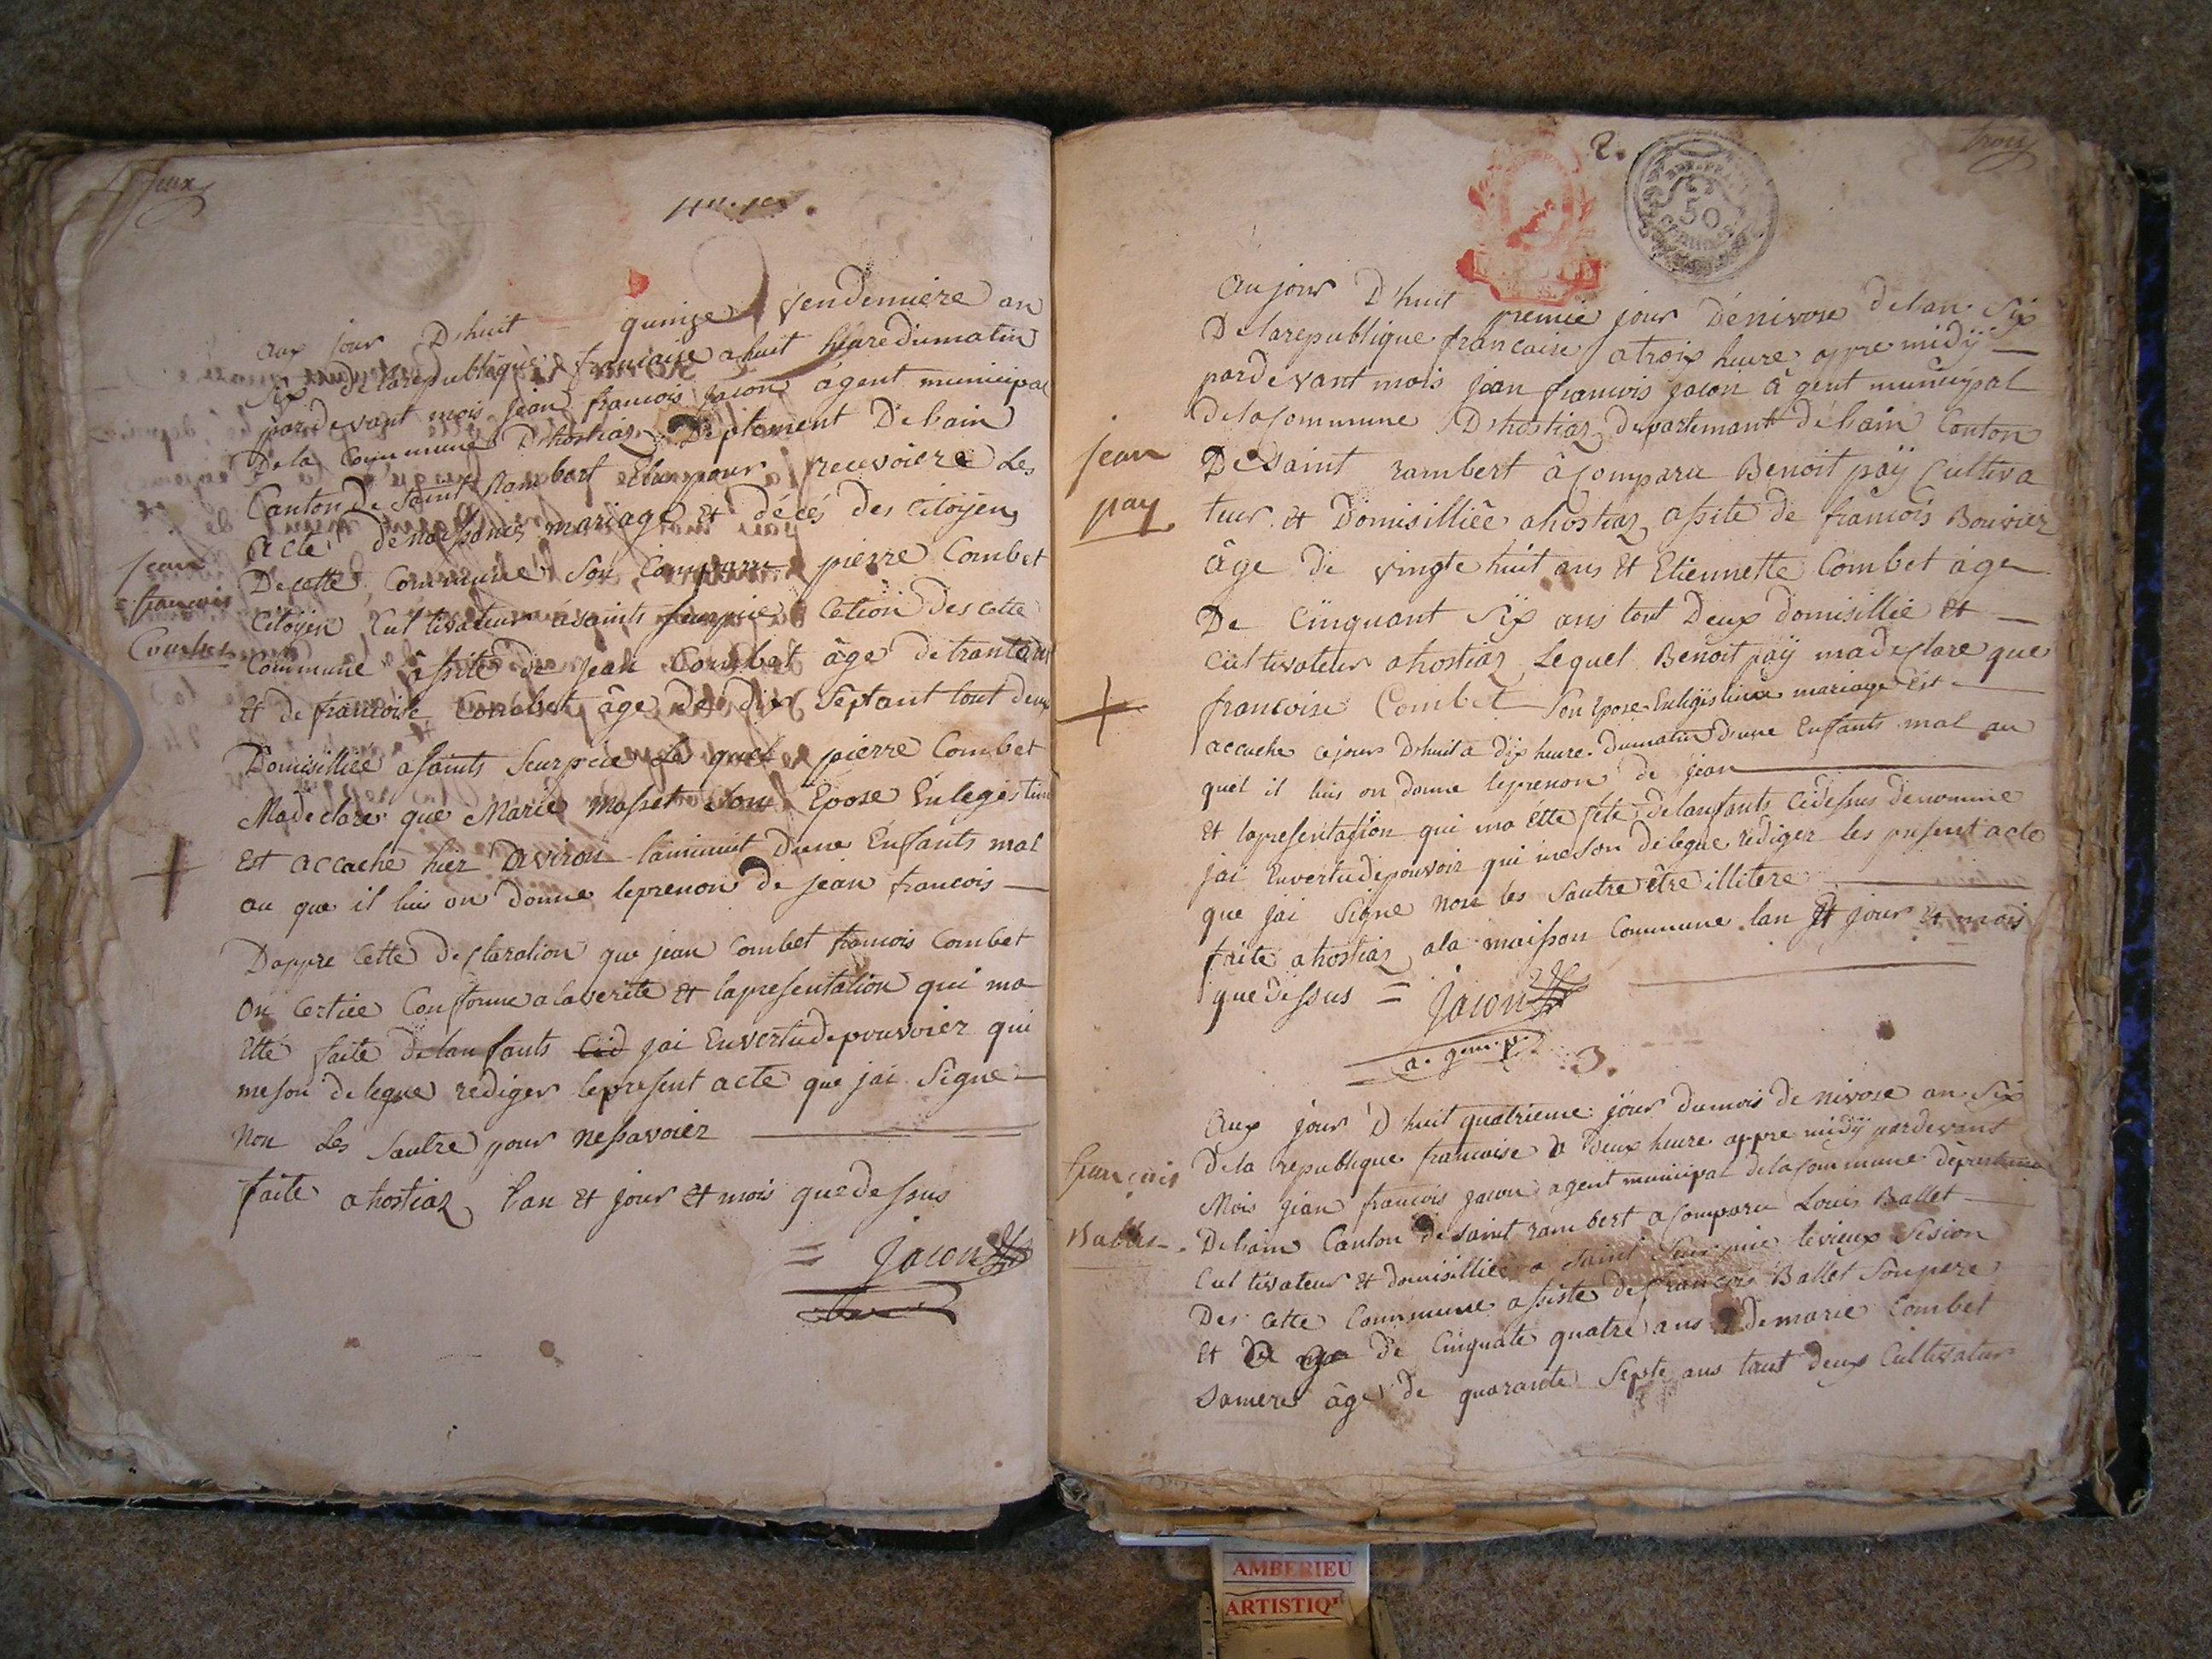 deux
Nº 1er.
Aux jour Dhuit quinze vendemiere an
Six de la republique francaise a huit heure du matin
pardevant mois jean francois jacon agent municipal
De la Commune Dhostiaz Deptement De lain
Canton de Saint Rambert Elu pour recevoire Les
Acte de naissance mariage et décés des Citoyens
De cette Commune Son Comparu pierre Combet
Citoyen Cultivateur a saints Seurpie Cetion des cette
Commune assite de jean Combet âge de trantans
et de francoise Combet âge de dix Septant tout deux
Domisilliée a saints Seurpcie Le quel pierre Combet
Made clare que Marie Masset Son Epose En legestime
Est accache hier Deviron laminuit Dune Enfants mal
au que il luis on donne leprenon de jean francois
Dappre Cette Declaration que jean Combet francois Combet
On Certiee Conforme a la verite et lapresentation qui ma
Etté faite de lanfants Cid jai En vertu de pouvoier qui
me son delegue rediger le present acte que jai Signe
Non Les Sautre pour ne savoier
faite a hostiaz lan et jour et mois que dessus
= Jacon
jean
francois
Combet
2.
trois
50
CENTIMES
Aujour Dhuit premie jour De nivose de lan Six
De la republique francaise a trois heure appre midÿ
pardevant mois jean francois jacon âgent municipal
de la Commune Dhostiaz departemant de lain Canton
De saint rambert â Comparu Benoit paÿ Cultiva
teur et Domisilliée a hostiaz assite de francois Bouvier
âge de vingte huit ans Et Etiennette Combet âge
De Cinquant Six ans tout Deux domisillié et
Cultivateur a hostiaz Lequel Benoit paÿ ma declare que
francoise Combet Son Epose En legistime mariage Est
accuche ce jour Dhuit a Dix heure du matin Dune Enfants mal au
quel il luis on donne leprenon de jean
et lapresentassion qui ma Etté fete de lanfants cidessus denomme
jai En vertu de pouvoir qui me son delegue rediger les present acte
que jai Signe non les Sautre être illitere
faite a hostiaz a la maison Commune lan Et jour et mois
que dessus = Jacon
jean
pay
3.
Aux jour Dhuit quatrieme jour du mois de nivose an Six
De la republique francaise a Deux heure appre midÿ pardevant
Mois jean francois jacon agent municipal de la Commune departemen
De lain Canton de saint rambert a Comparu Louis Ballet
Cultivateur et domisilliée a Saint Seurpie le vieux Sesion
Des Cette Commune assiste de francois Ballet Son pere
et De age de Cinquate quatre ans et de marie Combet
Samere âge de quarante Septe ans tout deux Cultivatur
francois
Ballet
AMBERIEU
ARTISTIQ